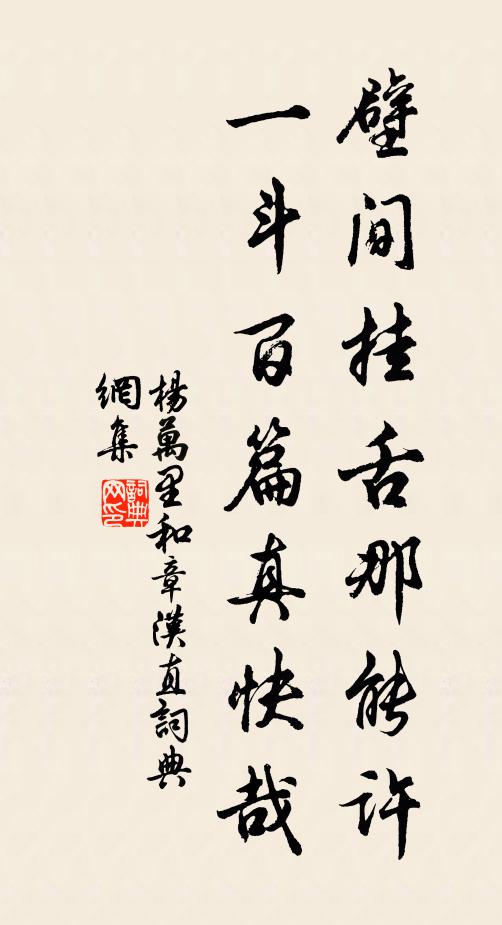 壁间挂舌那能许
一斗百篇真快哉
楊萬里和章漢直詞典
網集
詞典網印